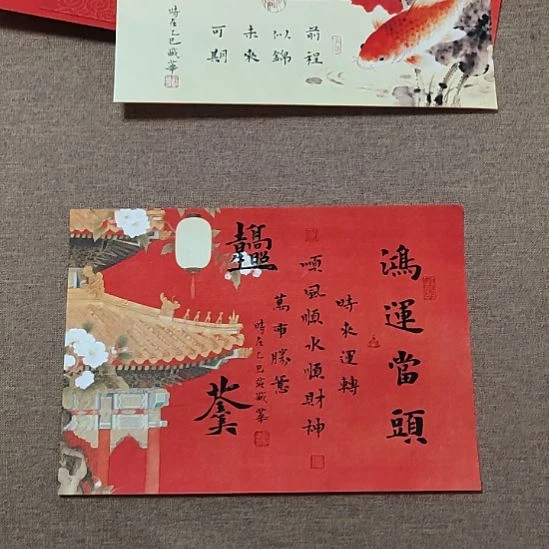 前程
似錦
未來
可期
時在乙巳歲華
鴻運當頭
時來運轉
順風順水順財神
萬事勝意
時在乙巳
歲華